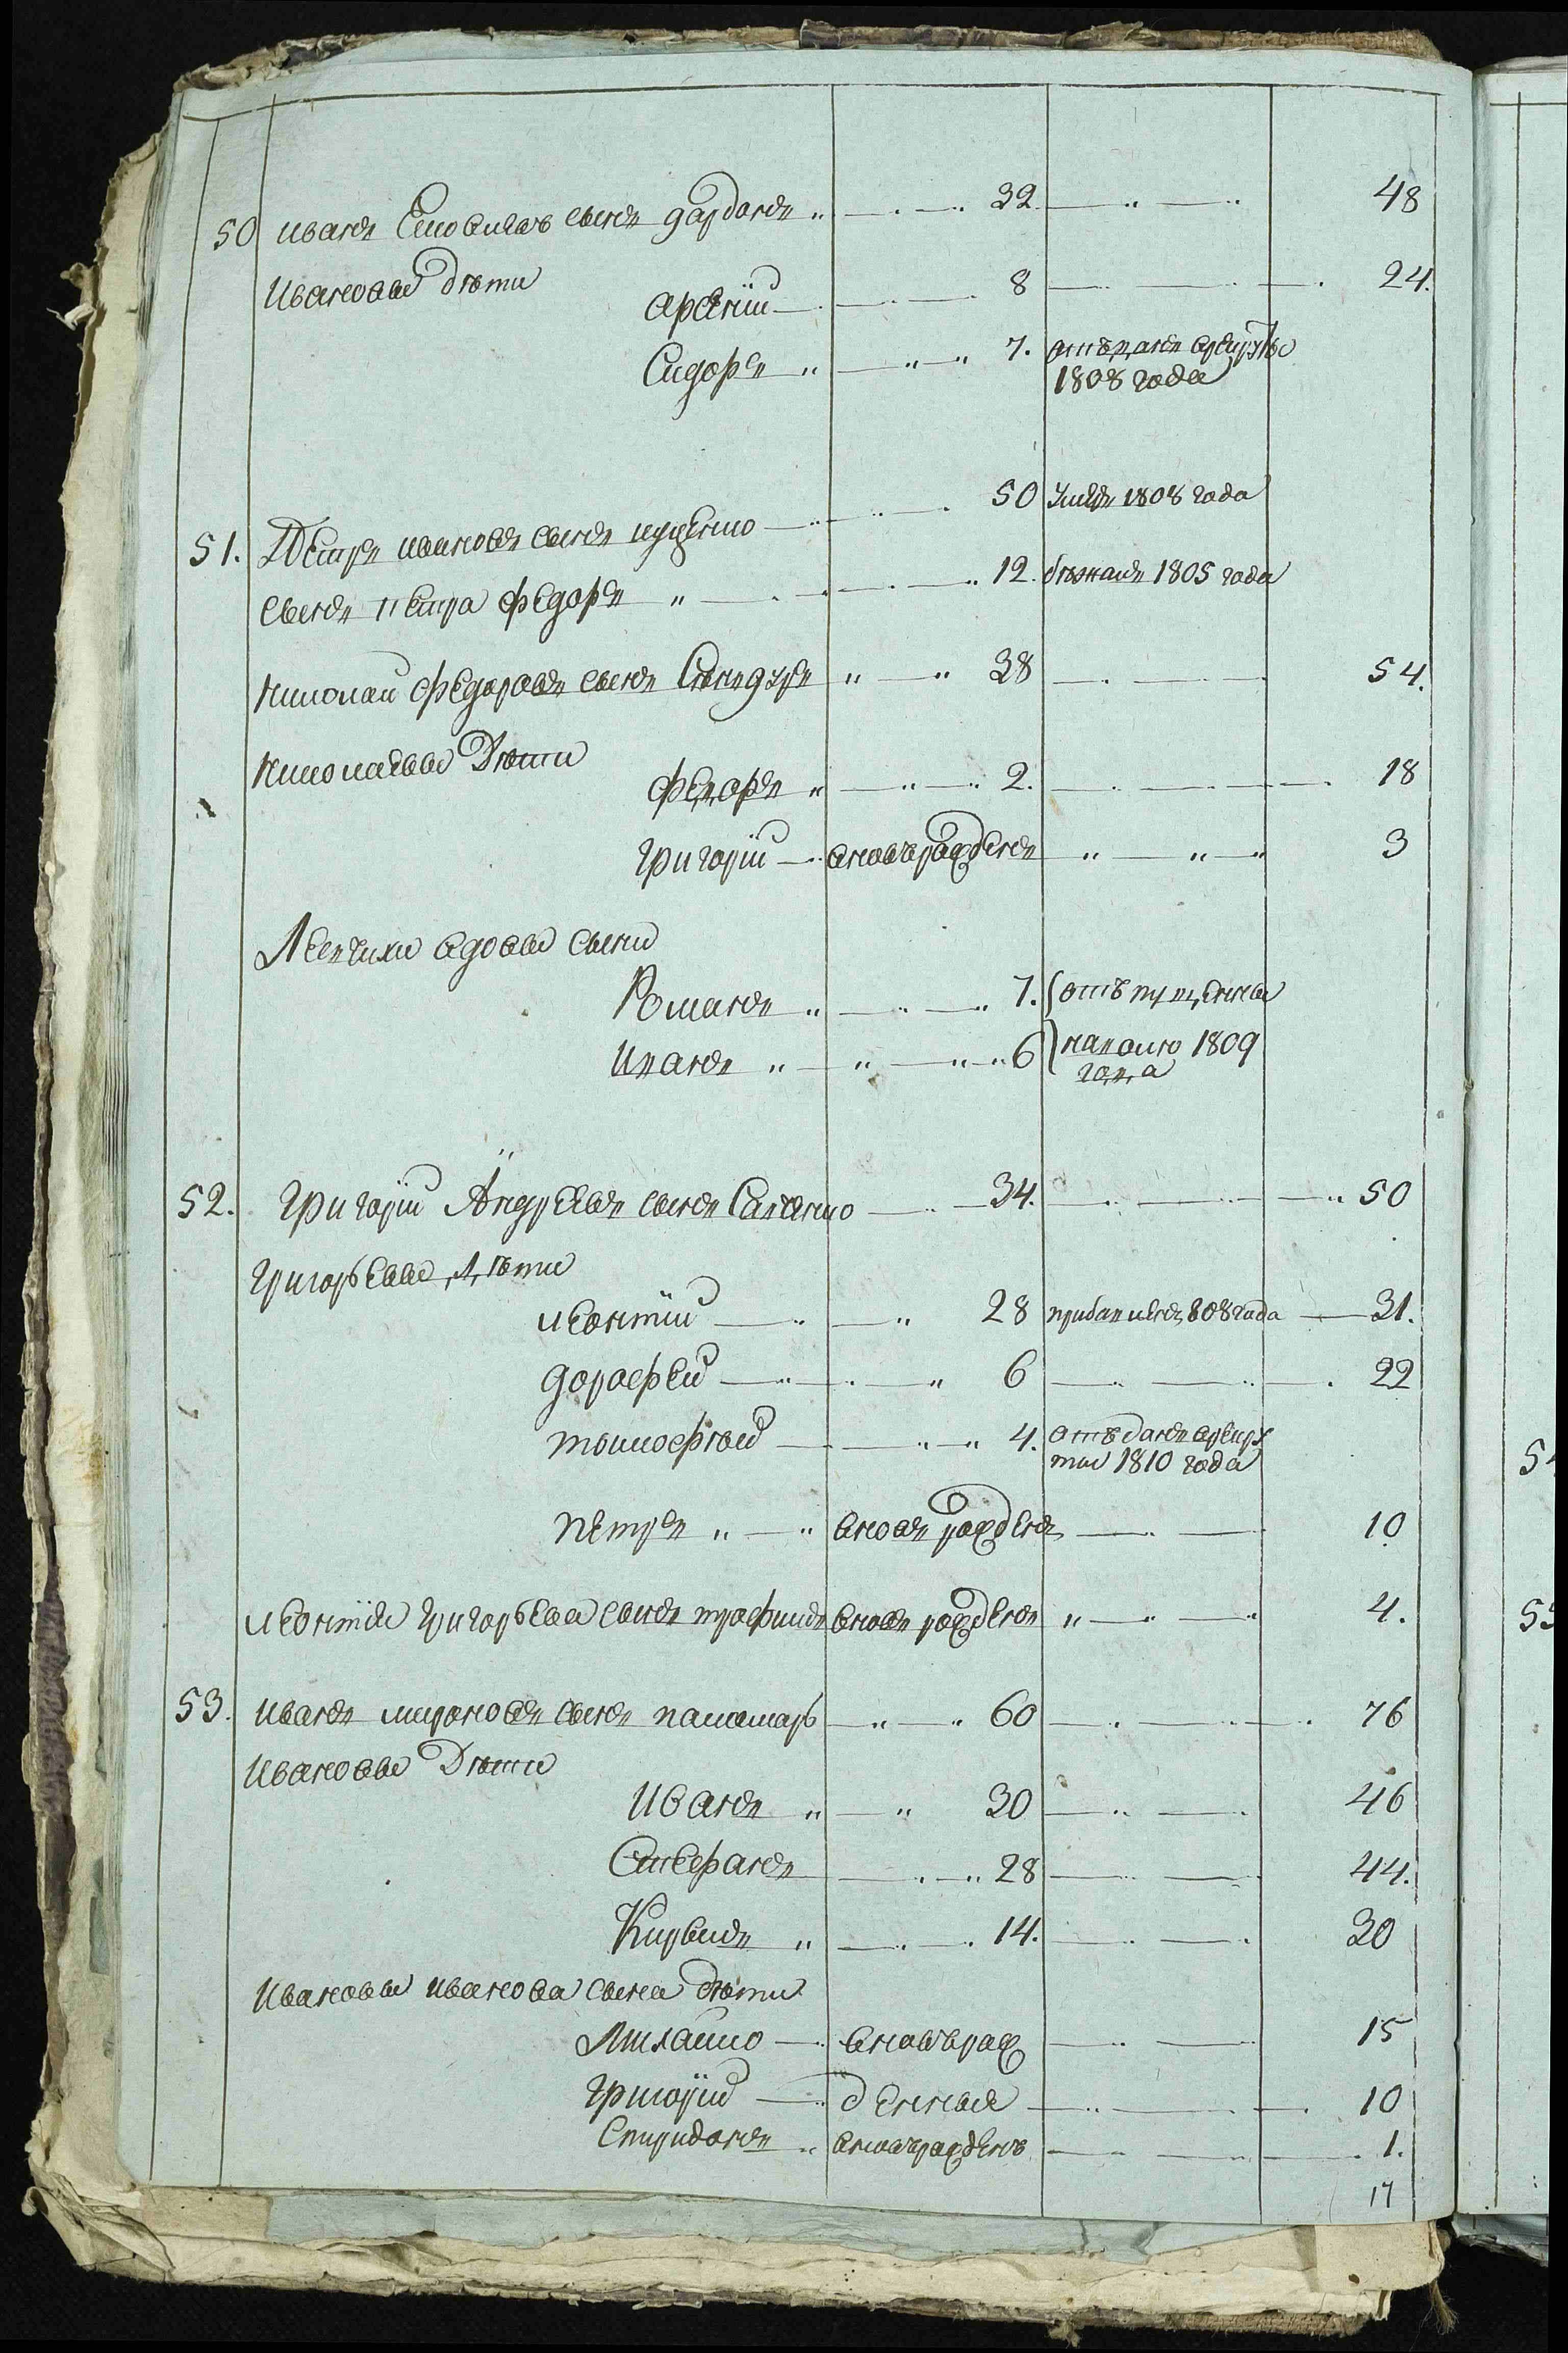 50 Иванъ сынъ дардонъ 32 48
Ивановы дѣти
Арсений 8 24.
Сидоръ 7. отъданъ врекруты
1808 года
51. Петръ Ивановъ сынъ куценко 50 умеръ 1808 года
Сынъ Петра федоръ 12. бѣжалъ 1805 года
Николай федоровъ сынъ 38 54.
Николаевы Дѣти
федоръ 2. 18
григорій вновьрожденъ 3
вдовы сыни
Романъ 7. отъпущены
Иванъ 6 наволю 1809
года
52. григорій Андреевъ сынъ Савченко 34. 50
григорьевы дѣти
леонтій 28 прибавленъ 808 года 31.
дорофей 6 22
тимофѣй 4. отъданъ врекру
ты 1810 года
петръ вновъ рожденъ 10
леонтия григорьева сынъ трофимъ вновъ рожденъ 4.
53. иванъ мироновъ сынъ паламарь 60 76
Ивановы Дѣти
Иванъ 30 46
Стефанъ 28 44.
Кирыло 14. 30
Ивановы иванова сына дѣти
Михайло вновьрож 15
григорій денныя 10
Спиридонъ вновьрожденъ 1.
17